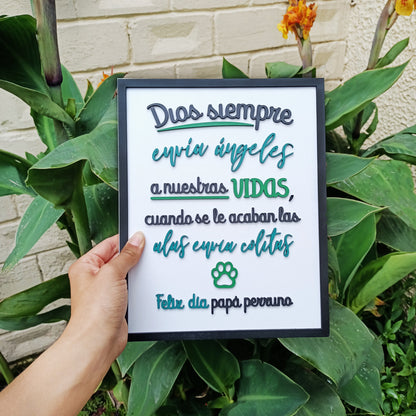 Dios siempre
envía ángeles
a nuestras VIDAS,
cuando se le acaban las
alas envía colitas
Feliz día papá perruno